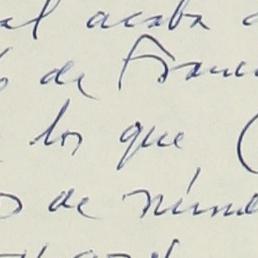 al acaba
de Franc
los que (
de núm